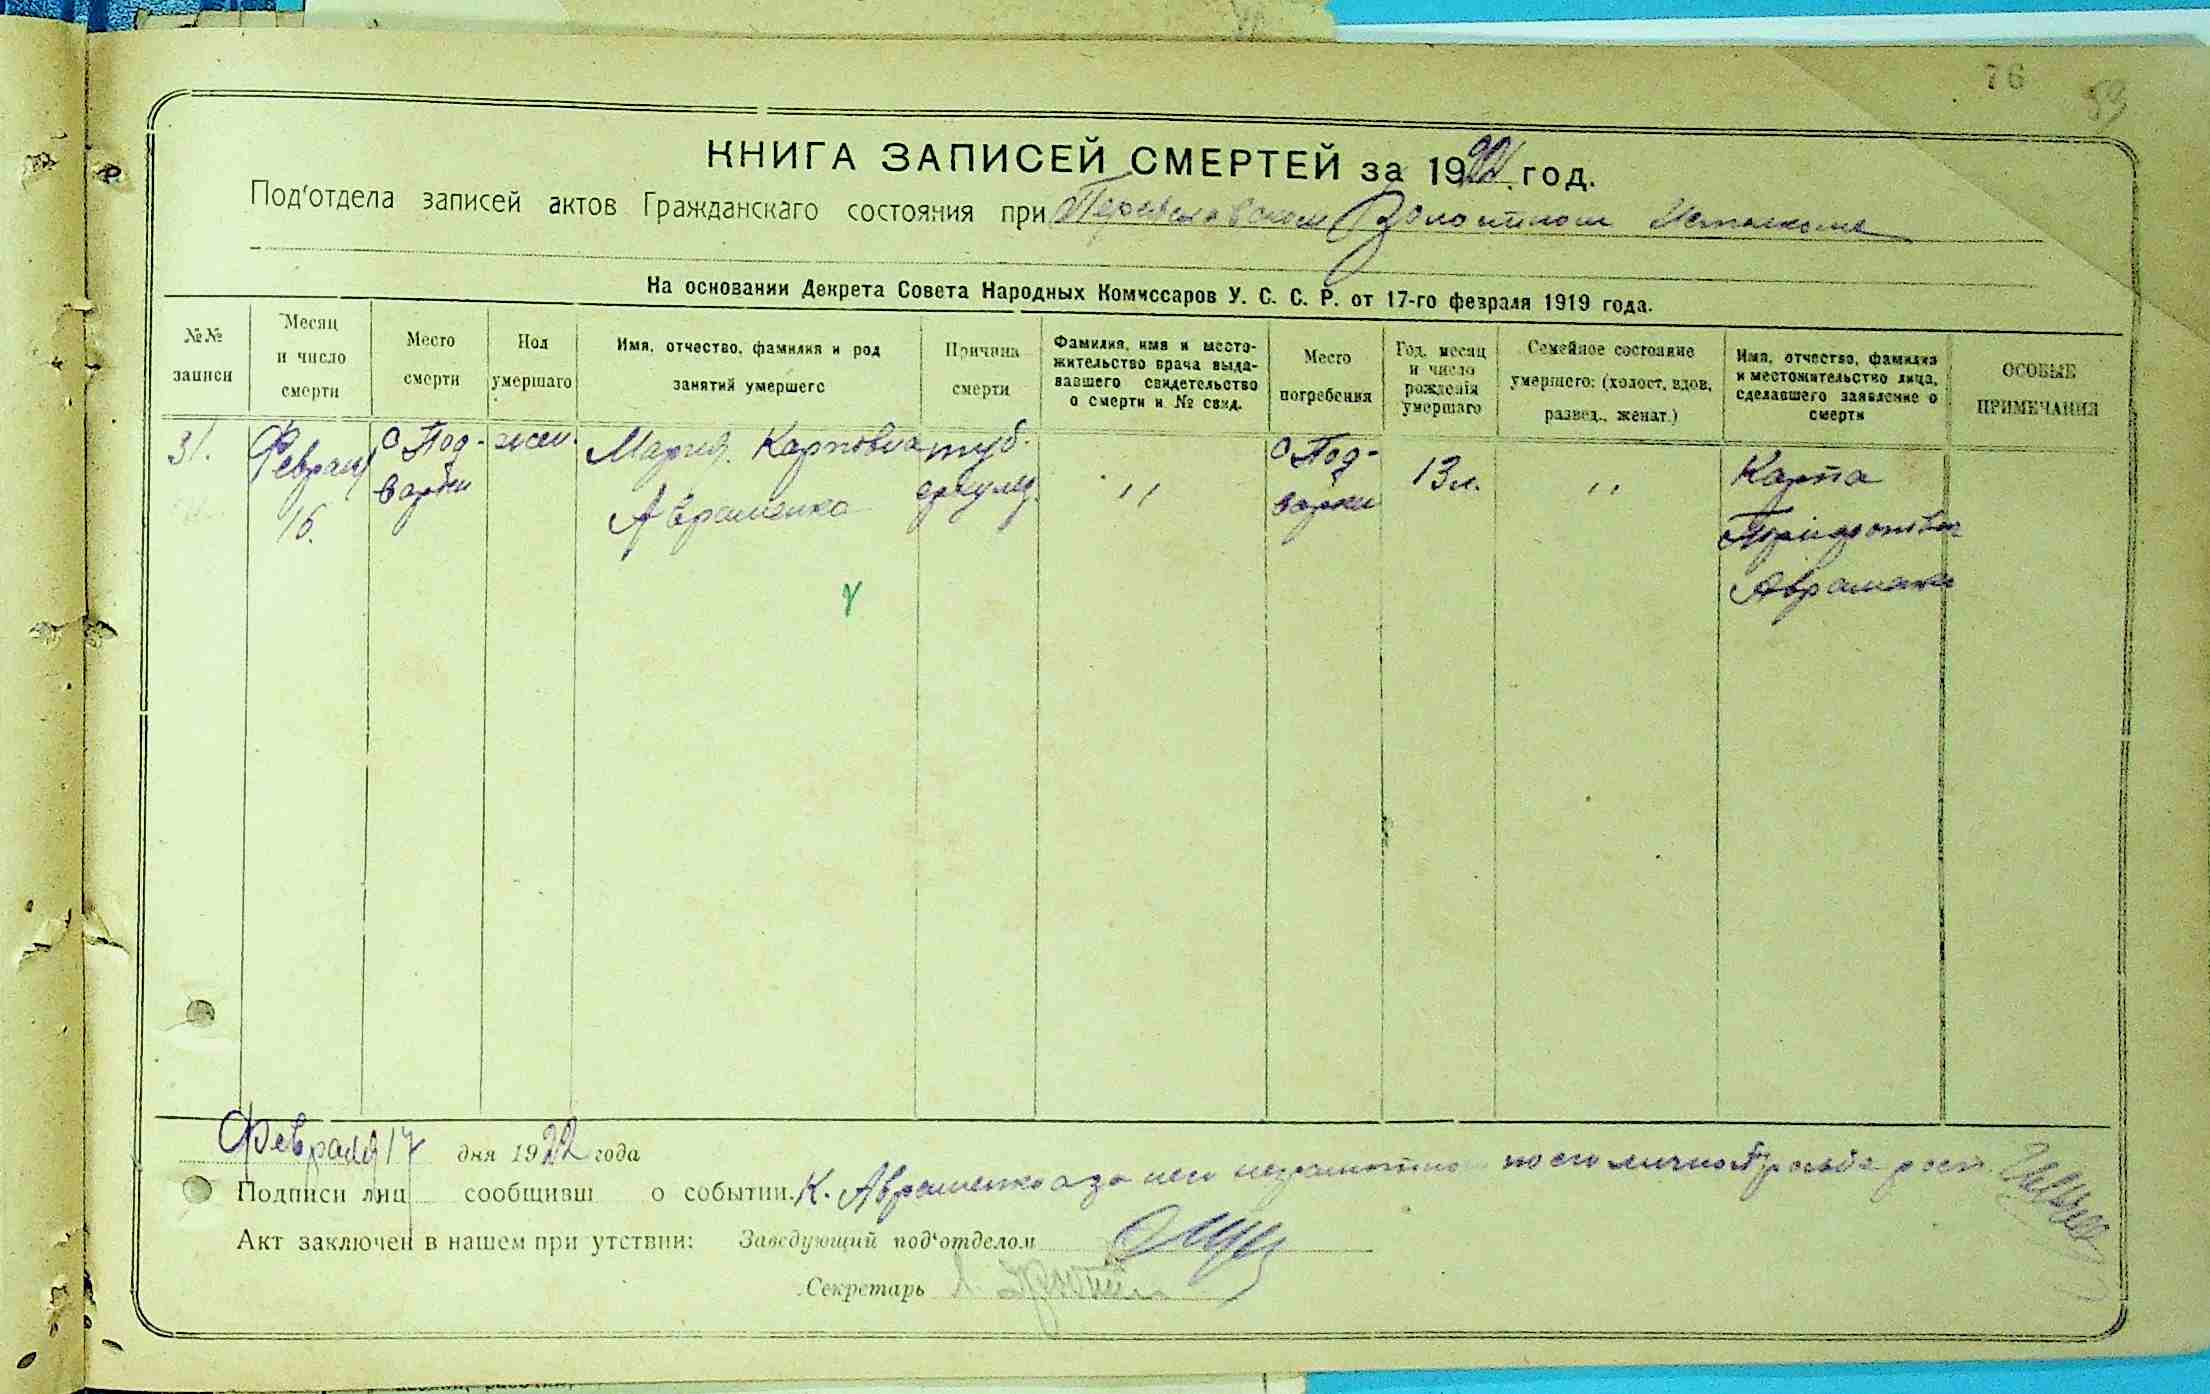 76
59
КНИГА ЗАПИСЕЙ СМЕРТЕЙ за 1922 год.
Под'отдела записей актов Гражданскаго состояния при Переяславском Волостном Исполкоме
На основании Декрета Совета Народных Комиссаров У. С. С. Р. от 17-го февраля 1919 года.
№№ записи
Месяц и число смерти
Место смерти
Пол умершаго
Имя, отчество, фамилия и род занятий умершего
Причина смерти
Фамилия, имя и место-жительство врача выда-вавшего свидетельство о смерти и № свид.
Место погребения
Год, месяц и число рождения умершаго
Семейное состояние умершего: (холост, вдов, развед., женат.)
Имя, отчество, фамилия и местожительство лица, сделавшего заявление о смерти
ОСОБЫЕ ПРИМЕЧАНИЯ
31.
Февраля
16.
с Под-
варки
жен.
Мария Карповна
Авраменко
туб.
еркулез.
"
с Под-
варки
13 л.
"
Карпа
Авраменко
Февраля 17 дня 1922 года
Подписи лиц сообщивш о событии. К. Авраменко а за него неграмотного по его личной просьбе расп.
Акт заключен в нашем при утствии: Заведующий под'отделом
Секретарь